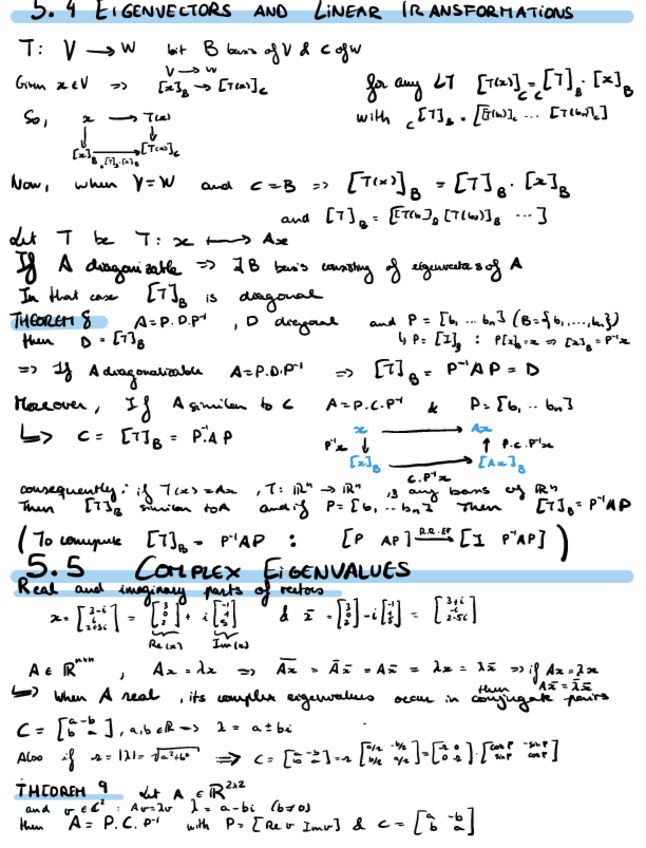 5.4 EIGENVECTORS AND LINEAR TRANSFORMATIONS
T: V → W let B basis of V & C of W
Given x ∈ V => [x]_B → [T(x)]_C
V → W
for any LT [T(x)]_C = _C[T]_B · [x]_B
So, x → T(x)
with _C[T]_B = [[T(b₁)]_C ... [T(bₙ)]_C]
[x]_B → [T(x)]_C
Now, when V=W and C=B => [T(x)]_B = [T]_B · [x]_B
and [T]_B = [[T(b₁)]_B [T(b₂)]_B ...]
Let T be T: x ↦ Ax
If A diagonizable => ∃B basis consisting of eigenvectors of A
In that case [T]_B is diagonal
THEOREM 8 A=P.D.P⁻¹ , D diagonal and P = [b₁ ... bₙ] (B={b₁,...,bₙ})
then D = [T]_B
↳ P = [I]_B : P[x]_B = x => [x]_B = P⁻¹x
=> If A diagonalizable A=P.D.P⁻¹ => [T]_B = P⁻¹AP = D
Moreover, If A similar to C A=P.C.P⁻¹ & P=[b₁ .. bₙ]
↳ C = [T]_B = P⁻¹AP
x → Ax
P⁻¹x ↓ ↑ P.C.P⁻¹x
[x]_B → [Ax]_B
C.P⁻¹x
consequently: if T(x)=Ax , T: ℝⁿ → ℝⁿ , B any basis of ℝⁿ
Then [T]_B similar to A and if P=[b₁ .. bₙ] Then [T]_B = P⁻¹AP
(To compute [T]_B = P⁻¹AP : [P AP] → [I P⁻¹AP])
5.5 COMPLEX EIGENVALUES
Real and imaginary parts of vectors
x = [3-i i 2+5i] = [3 0 2] + i[-1 1 5] & x̄ = [3 0 2] - i[-1 1 5] = [3+i -i 2-5i]
Re(x) Im(x)
A ∈ ℝⁿˣⁿ , Ax = λx => A̅x̅ = A̅x̄ = Ax̄ = λ̅x̅ = λ̄x̄ => if Ax = λx
then Ax̄ = λ̄x̄
↳ When A real , its complex eigenvalues occur in conjugate pairs
C = [a -b b a] , a,b ∈ ℝ => λ = a ± bi
Also if r = |λ| = √a²+b² => C = [a -b b a] = r [a/r -b/r b/r a/r] = [r 0 0 r] · [cos φ -sin φ sin φ cos φ]
THEOREM 9 Let A ∈ ℝ²ˣ²
and v ∈ ℂ² : Av=λv λ = a-bi (b≠0)
then A = P.C.P⁻¹ with P = [Re v Im v] & C = [a -b b a]